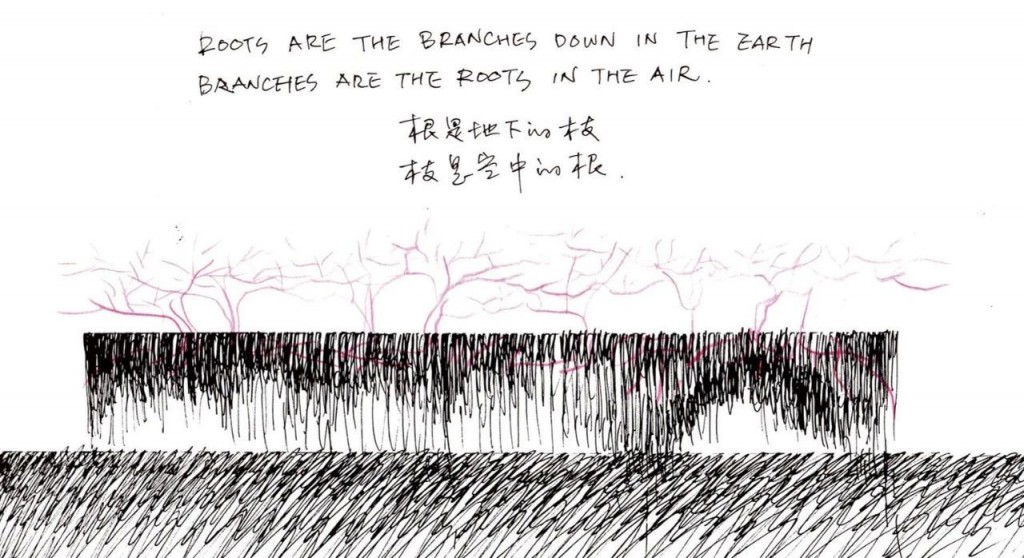 ROOTS ARE THE BRANCHES DOWN IN THE EARTH
BRANCHES ARE THE ROOTS IN THE AIR.
根是地下的枝
枝是空中的根.